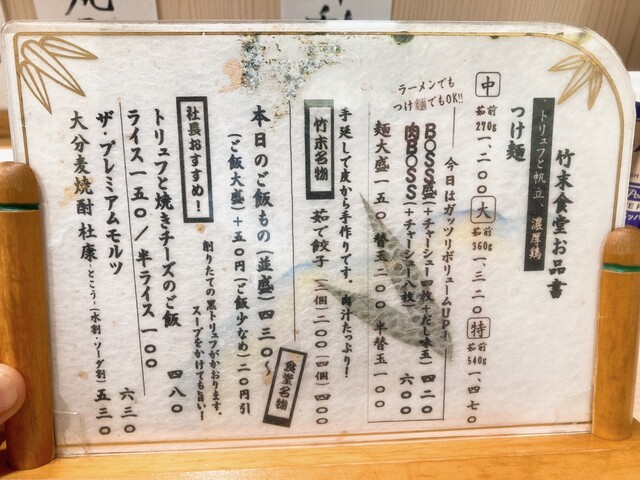 竹末食堂お品書
トリュフと帆立、濃厚鶏
つけ麺
中 茹前270g 一、二〇〇
大 茹前360g 一、三二〇
特 茹前540g 一、四七〇
ラーメンでも
つけ麺でもOK!!
今日はガッツリボリュームUP!
BOSS盛(+チャーシュー四枚+だし味玉) 四二〇
肉BOSS(+チャーシュー八枚) 六〇〇
麺大盛 一五〇 替玉 二〇〇 半替玉 一〇〇
手延しで皮から手作りです。肉汁たっぷり!
竹末名物
茹で餃子 (三個)二〇〇 (四個)四〇〇
食堂名物
本日のご飯もの(並盛)四三〇〜
(ご飯大盛)+五〇円(ご飯少なめ)二〇円引
社長おすすめ!
削りたての黒トリュフがかおります。
スープをかけても旨い!
トリュフと焼きチーズのご飯 四八〇
ライス一五〇/半ライス一〇〇
ザ・プレミアムモルツ 六三〇
大分麦焼酎 杜康 -とこう-(水割・ソーダ割) 五三〇